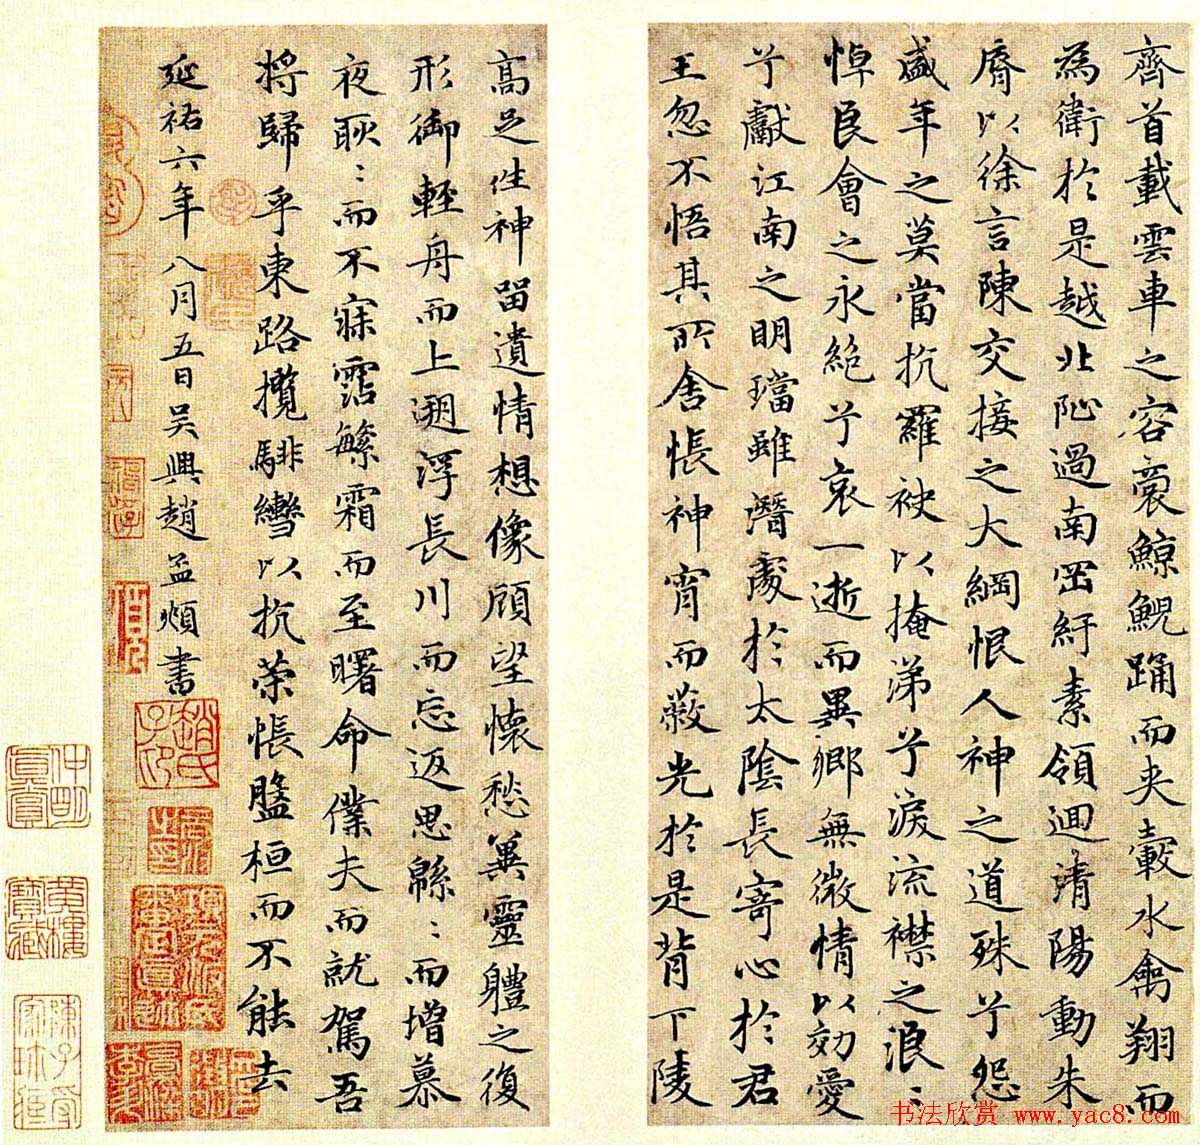 齊首載雲車之容裔鯨鯢踊而夾轂水禽翔而
為衛於是越北沚過南岡紆素領迴清陽動朱
脣以徐言陳交接之大綱恨人神之道殊兮怨
盛年之莫當抗羅袂以掩涕兮淚流襟之浪〻
悼良會之永絕兮哀一逝而異鄉無微情以効愛
兮獻江南之明璫雖潛處於太陰長寄心於君
王忽不悟其所舍悵神宵而蔽光於是背下陵
高足往神留遺情想像顧望懷愁冀靈體之復
形御輕舟而上遡浮長川而忘返思緜〻而增慕
夜耿〻而不寐霑繁霜而至曙命僕夫而就駕吾
將歸乎東路攬騑轡以抗策悵盤桓而不能去
延祐六年八月五日吴興趙孟頫書
趙氏子印
書法欣赏 www.yac8.com